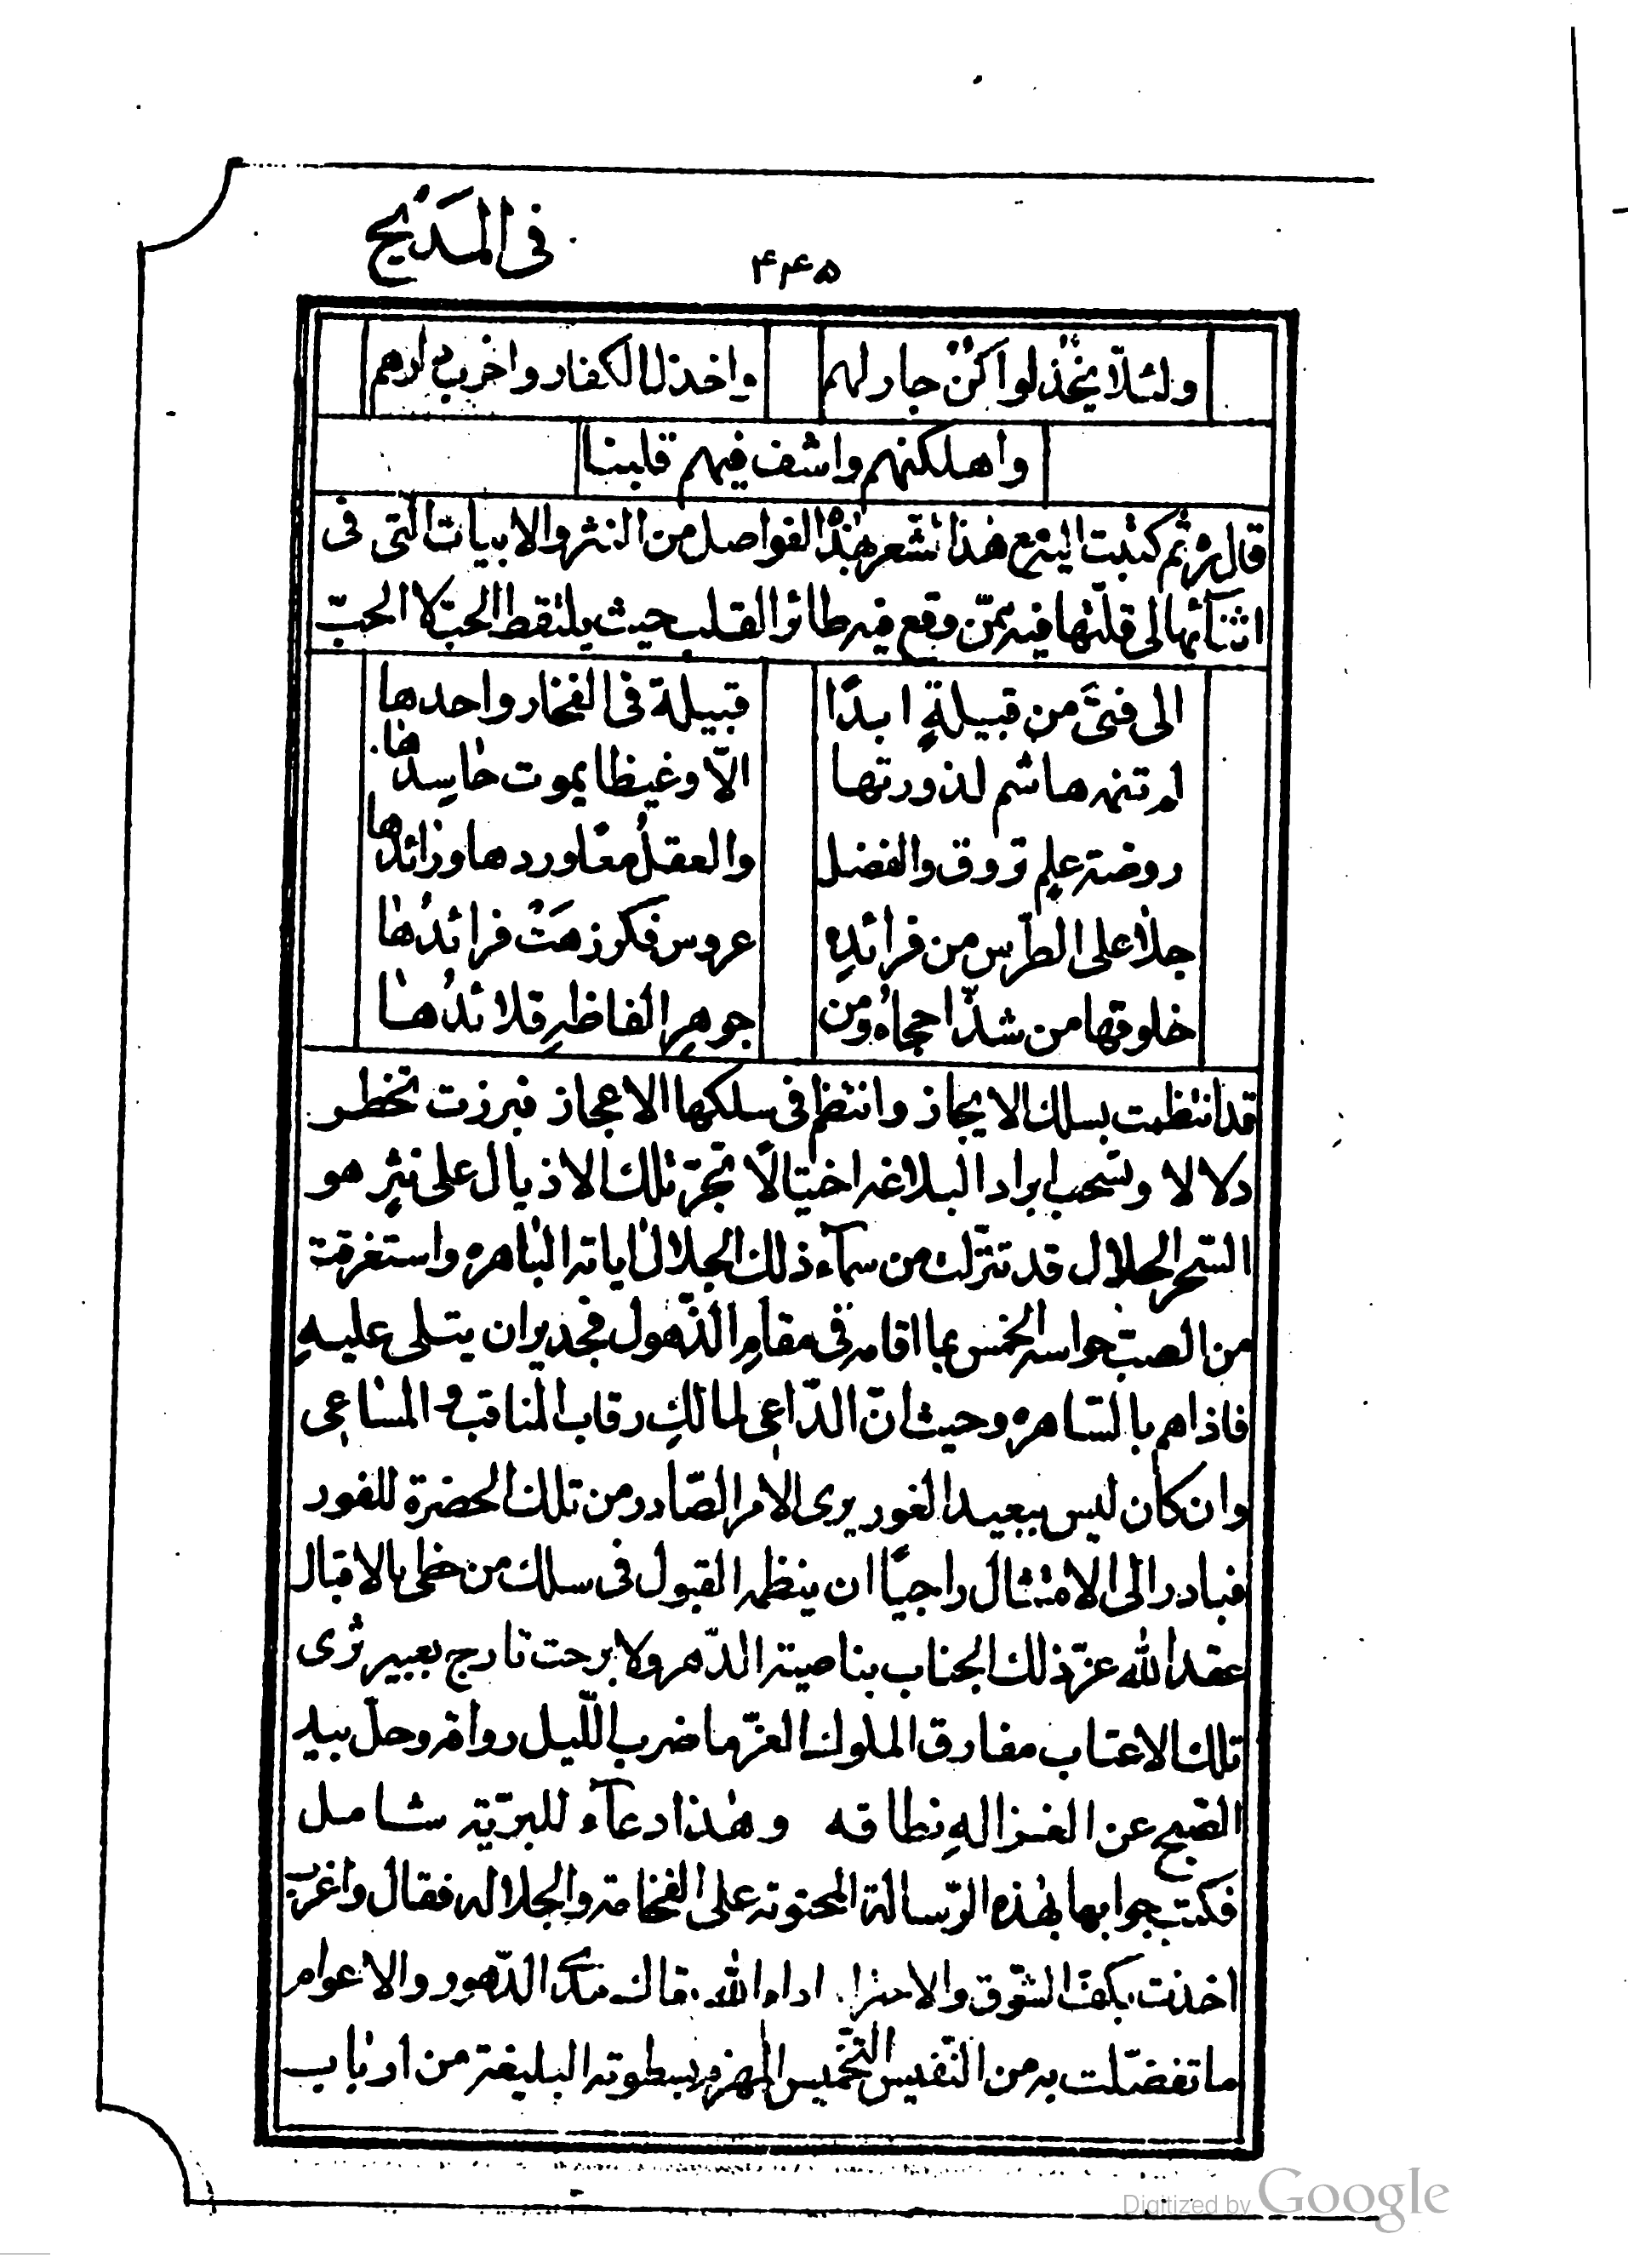 فى المَديح
۴۴۵
ولئلّا يخذلوا كن جار لهم واخذل الكفار واخرب دارهم
واهلكنهم واشف فيهم قلبنا
قال ره ثم كتبت اليه مع هذا الشعر هذه الفواصل من النثر والابيات التى فى
اثنائها لى قلتها فيه ممّن وقع فيه طائر القلب حيث يلتقط الحب لا الحبّ
الى فتىً من قبيلةٍ ابدًا قبيلة فى الفخار واحدها
لم تنمه هاشم لذورتها الّا وغيظا يموت حاسدها
روضة علمٍ تروق والفضل والعقل معًا وردها وزائدها
جلا على الطرس من فرائدِه عروس فكر زهَتْ فرائدُها
خلوقها من شذا حجاه ومن جوهر الفاظهِ قلائدُها
قد انتظمت بسلك الايجاز وانتظم فى سلكها الاعجاز فبرزت تخطر
دلالا وتسحب ابراد البلاغه اختيالًا تجرّ تلك الاذيال على نثرٍ هو
السّحر الحلال قد تنزّلت من سمآء ذلك الجلال اياته الباهره واستغرقت
من الصبّ حواسه الخمس بما اقامه فى مقامِ الذّهول فجدير ان يتلى عليهِ
فاذا هم بالسّاهره وحيث انّ الدّاعى لمالكِ رقاب المناقب والمساعى
وان كان ليس ببعيد الغور يرى الامر الصّادر من تلك الحضرة للفور
فبادر الى الامتثال راجيًا ان ينظمه القبول فى سلك من حظى بالاقبال
عقد الله عزّ ذلك الجناب بناصية الدّهر ولا برحت تارج بعبير ثرى
تلك الاعتاب مفارق الملوك الغرّ ما ضرب اللّيل رواقه وحلّ بيد
الصّبح عن الغزالهِ نطاقه وهٰذا دعآء للبريّة شامل
فكتب جوابها بهٰذه الرّسالة المحتوية على الفخامة والجلاله فقال واغرب
اخذت بكف الشّوق والاحترام ادام الله بقائك مدى الدّهور والاعوام
ما تفضّلت به من النّفيس التّخميس المهزم بسطوته البليغة من ارباب
Digitized by Google